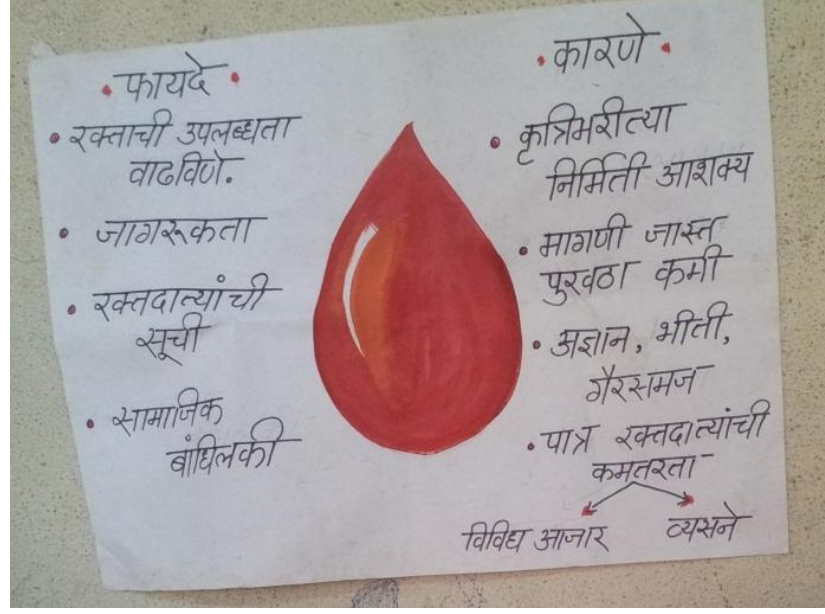 फायदे
• रक्ताची उपलब्धता
वाढविणे.
• जागरूकता
• रक्तदात्यांची
सूची
• सामाजिक
बांधिलकी
कारणे
• कृत्रिमरीत्या
निर्मिती आशक्य
• मागणी जास्त
पुरवठा कमी
• अज्ञान, भीती,
गैरसमज
• पात्र रक्तदात्यांची
कमतरता
विविध आजार व्यसने